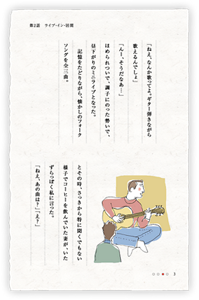 第2話 ライブ・イン・居間
「ねえ、なんか歌ってよ。ギター弾きながら
歌えるんでしょ」
「んー、そうだなあ…」
ほめられついで、調子にのった勢いで、
昼下がりのミニライブとなった。
記憶をたどりながら、懐かしのフォーク
ソングを全三曲。
とその時、さっきから特に聞くでもない
様子でコーヒーを飲んでいた妻が、いた
ずらっぽく私に言った。
「ねえ、あの曲は？」「え？」